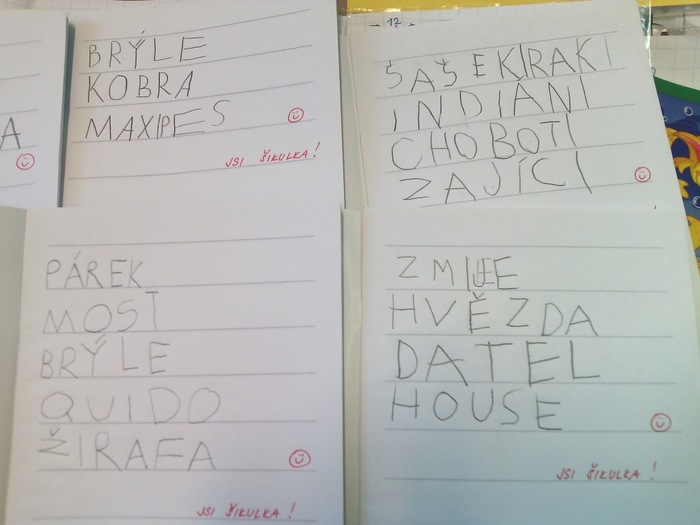 A
BRÝLE
KOBRA
MAXIPES
JSI ŠIKULKA!
- 17 -
ŠAŠEKIRAKI
INDIÁNI
CHOBOTI
ZAJÍCI
PÁREK
MOST
BRÝLE
QUIDO
ŽIRAFA
JSI ŠIKULKA!
HVĚZDA
DATEL
HOUSE
JSI ŠIKULKA!